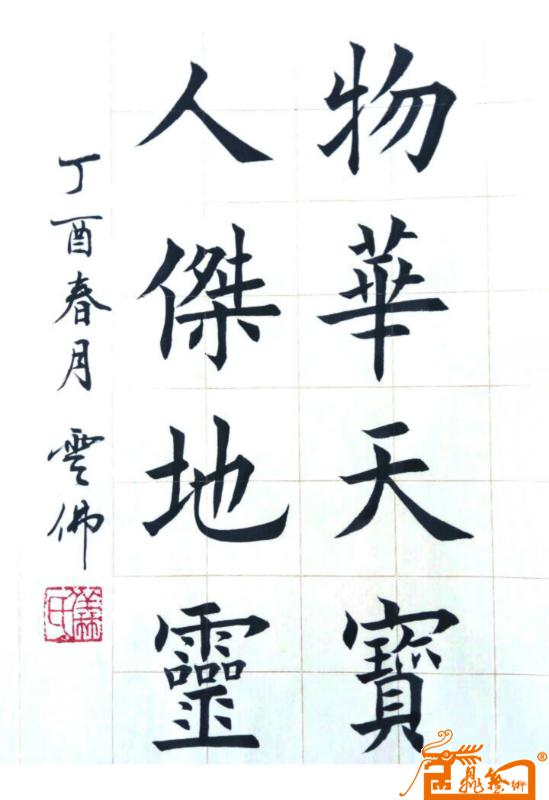 物華天寶
人傑地靈
丁酉春月 雲佛